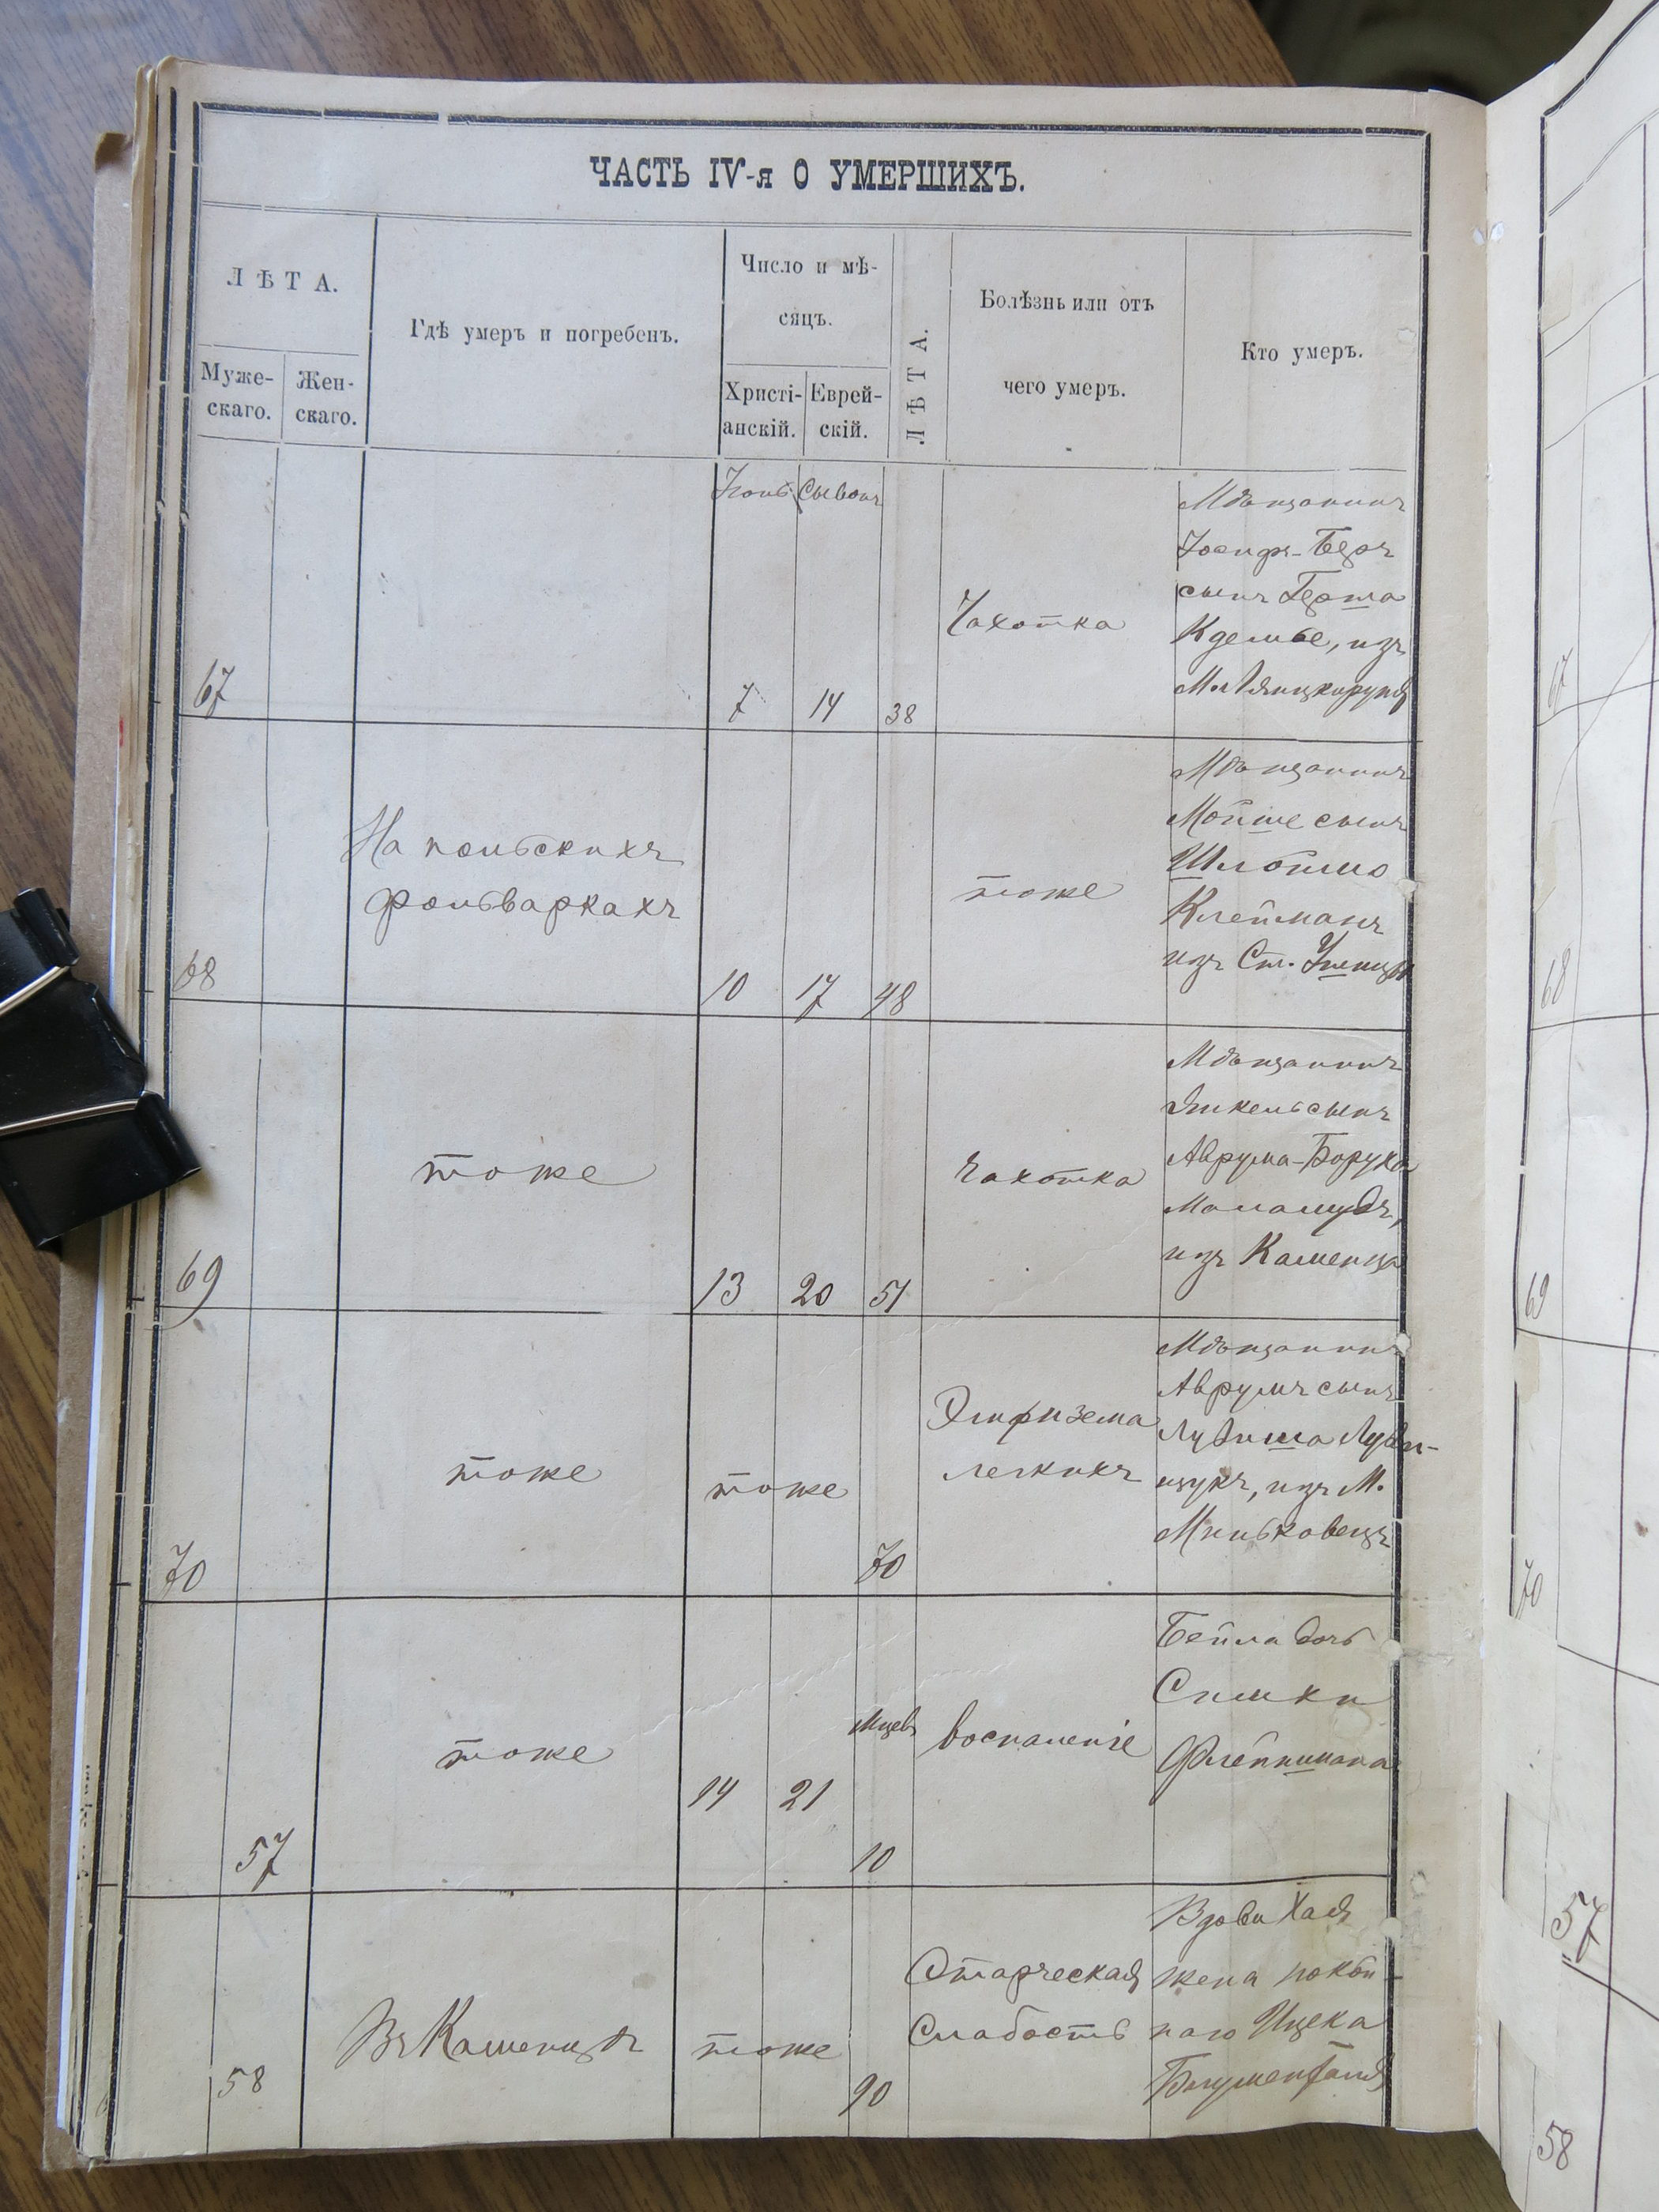 ЧАСТЬ IV-я О УМЕРШИХЪ.
ЛѢТА.
Муже-
скаго.
Жен-
скаго.
Гдѣ умеръ и погребенъ.
Число и мѣ-
сяцъ.
Христі-
анскій.
Еврей-
скій.
ЛѢТА.
Болѣзнь или отъ
чего умеръ.
Кто умеръ.
Іюнь Сывонъ
67
7
14
38
Чахотка
Мѣщанинъ
Іосифъ-Беръ
сынъ Герша
изъ
68
На польскихъ
фольваркахъ
10
17
48
тоже
Мѣщанинъ
Мойше сынъ
Шлоймо
Клейманъ
изъ Ст. Ушицы
69
тоже
13
20
51
Чахотка
Мѣщанинъ
Янкель сынъ
Аврума-Боруха
Маламудъ,
изъ Каменца
70
тоже
тоже
70
Эмфизема
легкихъ
Мѣщанинъ
Аврумъ сынъ
изъ М.
Миньковецъ
57
тоже
14
21
Мцевъ
10
воспаленіе
Бейла дочь
Симхи
58
Въ Каменцѣ
тоже
90
Старческая
слабость
Вдова Хая
жена покой-
наго Ицека
Блументаля
67
68
69
70
57
58